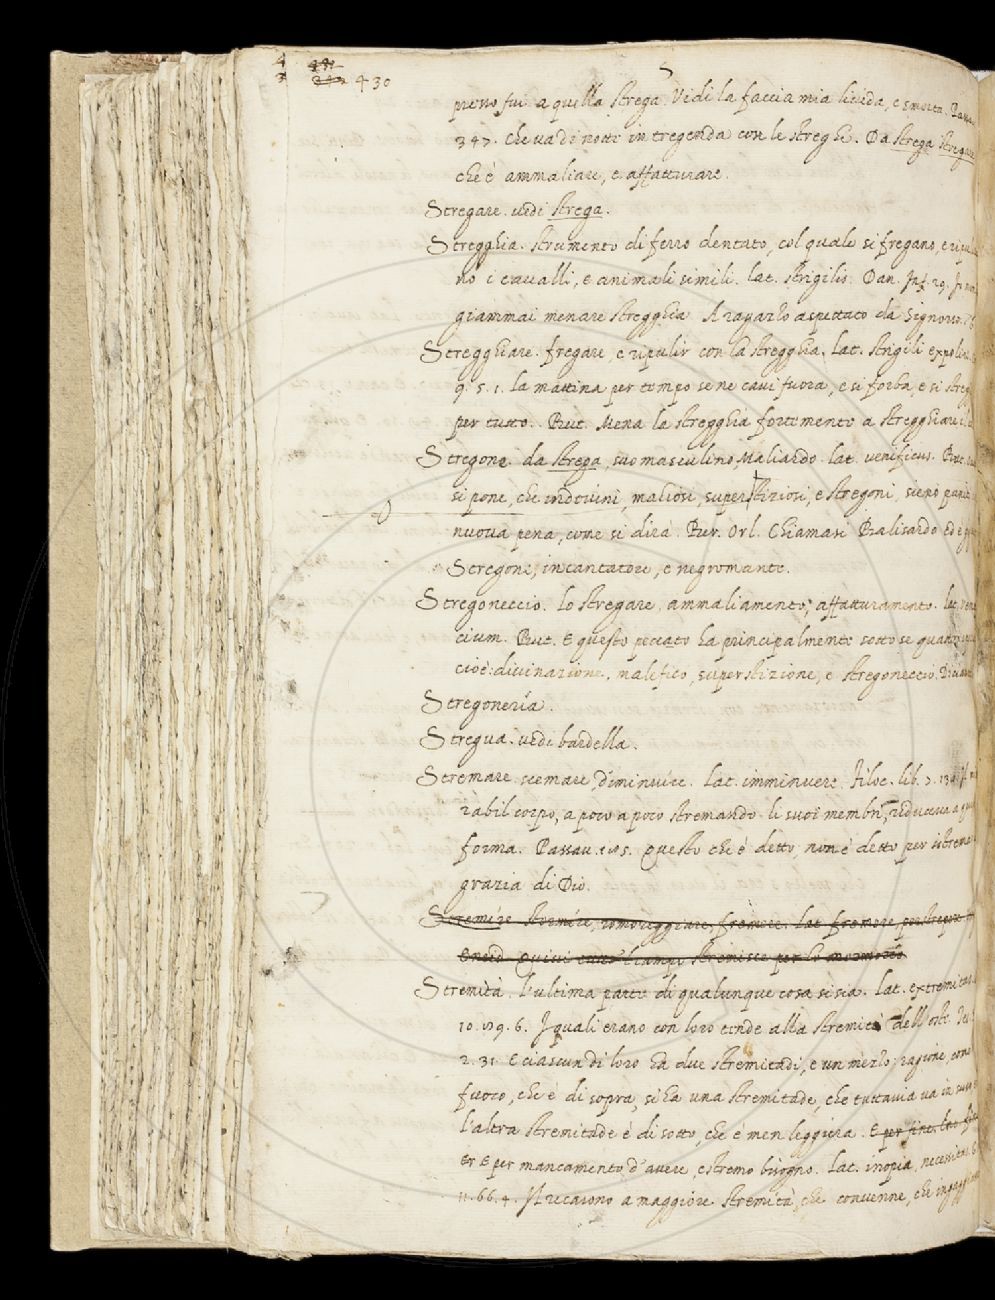 430
presso fui a quella strega. Vidi la faccia mia livida, e smorta.
347. che va di notte in tregenda con le streghe. Da strega stregare
che è ammaliare, e affatturare.
Stregare. vedi strega.
Stregghia. strumento di ferro dentato, col quale si fregano, e
no i cavalli, e animali simili. lat. strigilis. Dan. Inf. 29.
giammai menare stregghia A ragazzo aspettato da Signorso.
Stregghiare. fregare, e ripulir con la stregghia. lat. strigili
9. 5. 1. la mattina per tempo se ne cavi fuora, e si forba, e si
per tutto. But. Mena la stregghia fortemente a stregghiare
Stregone. da strega, suo masculino, Maliardo. lat. veneficus.
si pone, che indovini, maliosi, superstiziosi, e stregoni, sieno
nuova pena, come si dirà. Ber. Orl. Chiamasi Balisardo ed è
Stregone, incantatore, e negromante.
Stregoneccio. lo stregare, ammaliamento, affatturamento. lat.
cium. But. E questo peccato ha principalmente sotto se
cioè: divinazione, malefico, superstizione, e stregoneccio.
Stregoneria.
Stregua. vedi bardella.
Stremare. scemare, diminuire. lat. imminuere. Filoc. lib. 7.
rabil corpo, a poco a poco stremando li suoi membri, riduceva a
forma. Passav. Questo che è detto, non è detto per
grazia di Dio.
Stremire. stormire, romoreggiare, fremere. lat. fremere,
Eneid. Quivi tutto 'l campo stremisce per lo
Stremità. l'ultima parte di qualunque cosa si sia. lat.
10. 6. I quali erano con loro tende alla stremità dell' oste.
2. 31. E ciascun di loro ha due stremitadi, e un mezzo; ragione, come
fuoco, che è di sopra, si ha una stremitade, che tuttavia va in suso
l'altra stremitade è di sotto, che è men leggiera. E per fine. lat.
E per mancamento d'avere, estremo bisogno. lat. inopia,
11. 66. 4. Il recarono a maggiore stremità, che convenne, che